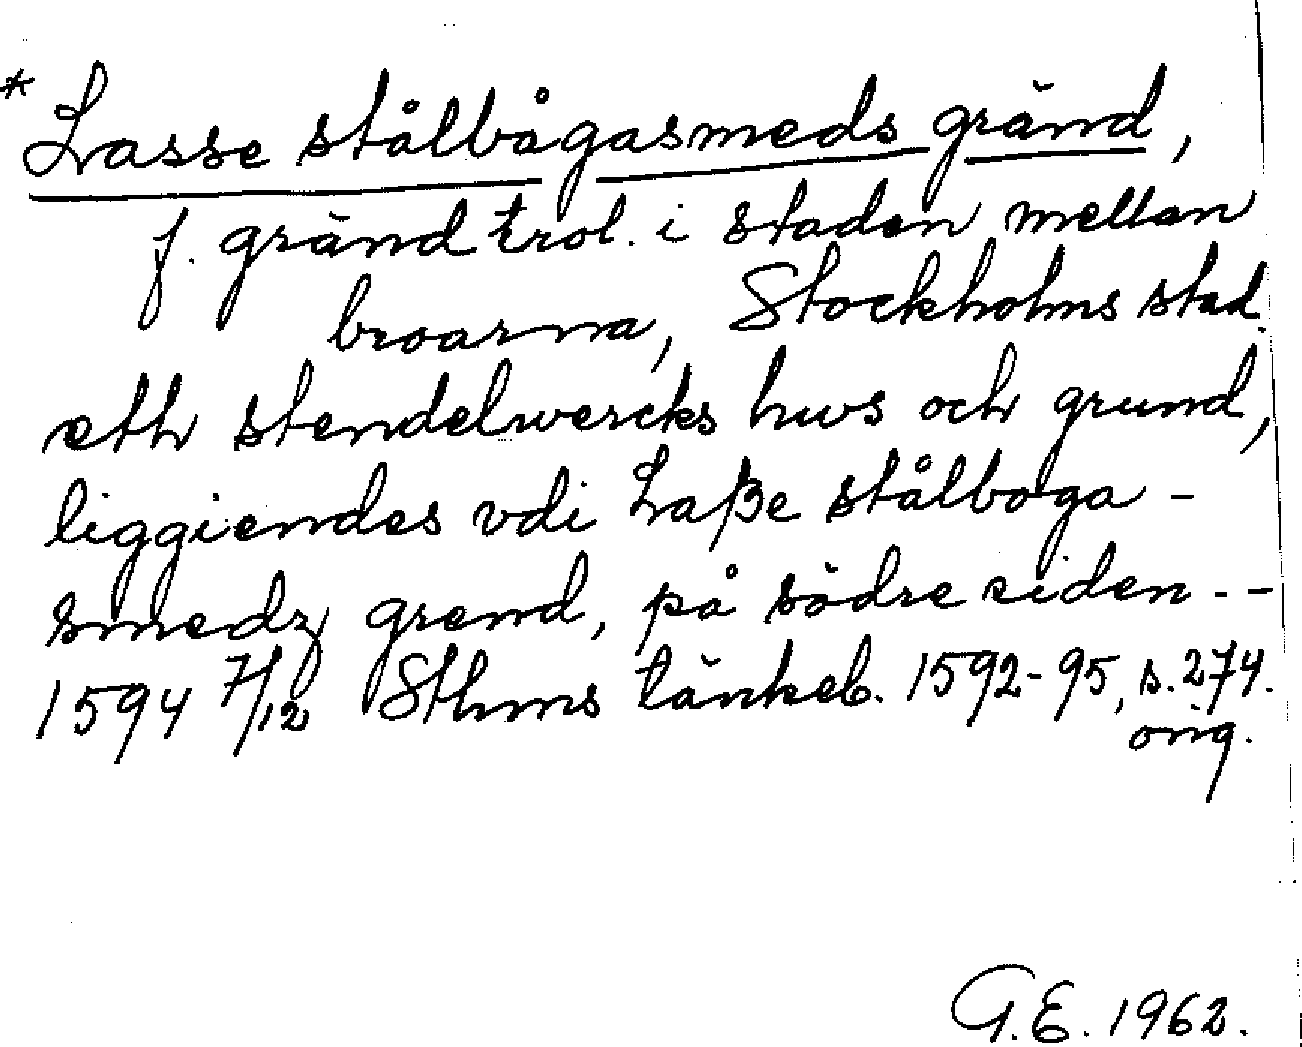 * Lasse stålbågasmeds gränd,
f. gränd trol. i staden mellan
broarna, Stockholms stad.
eth stendelwercks hws och grund,
liggiendes vdi Laße stålboga-
smedz grend, på södre siden --
1594 7/12 Sthms tänkeb. 1592-95, s. 274.
orig.
G.E. 1962.